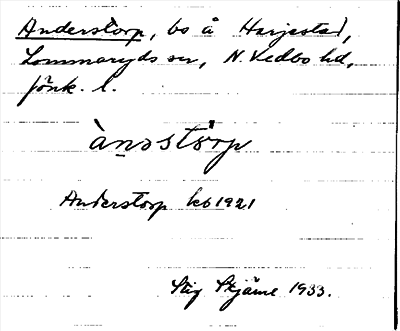 Anderstorp, bs å Harjestad,
Lommaryds sn, N. Vedbo hd,
Jönk. l.
ànəstórp
Anderstorp kb 1921
Stig Skjärne 1933.